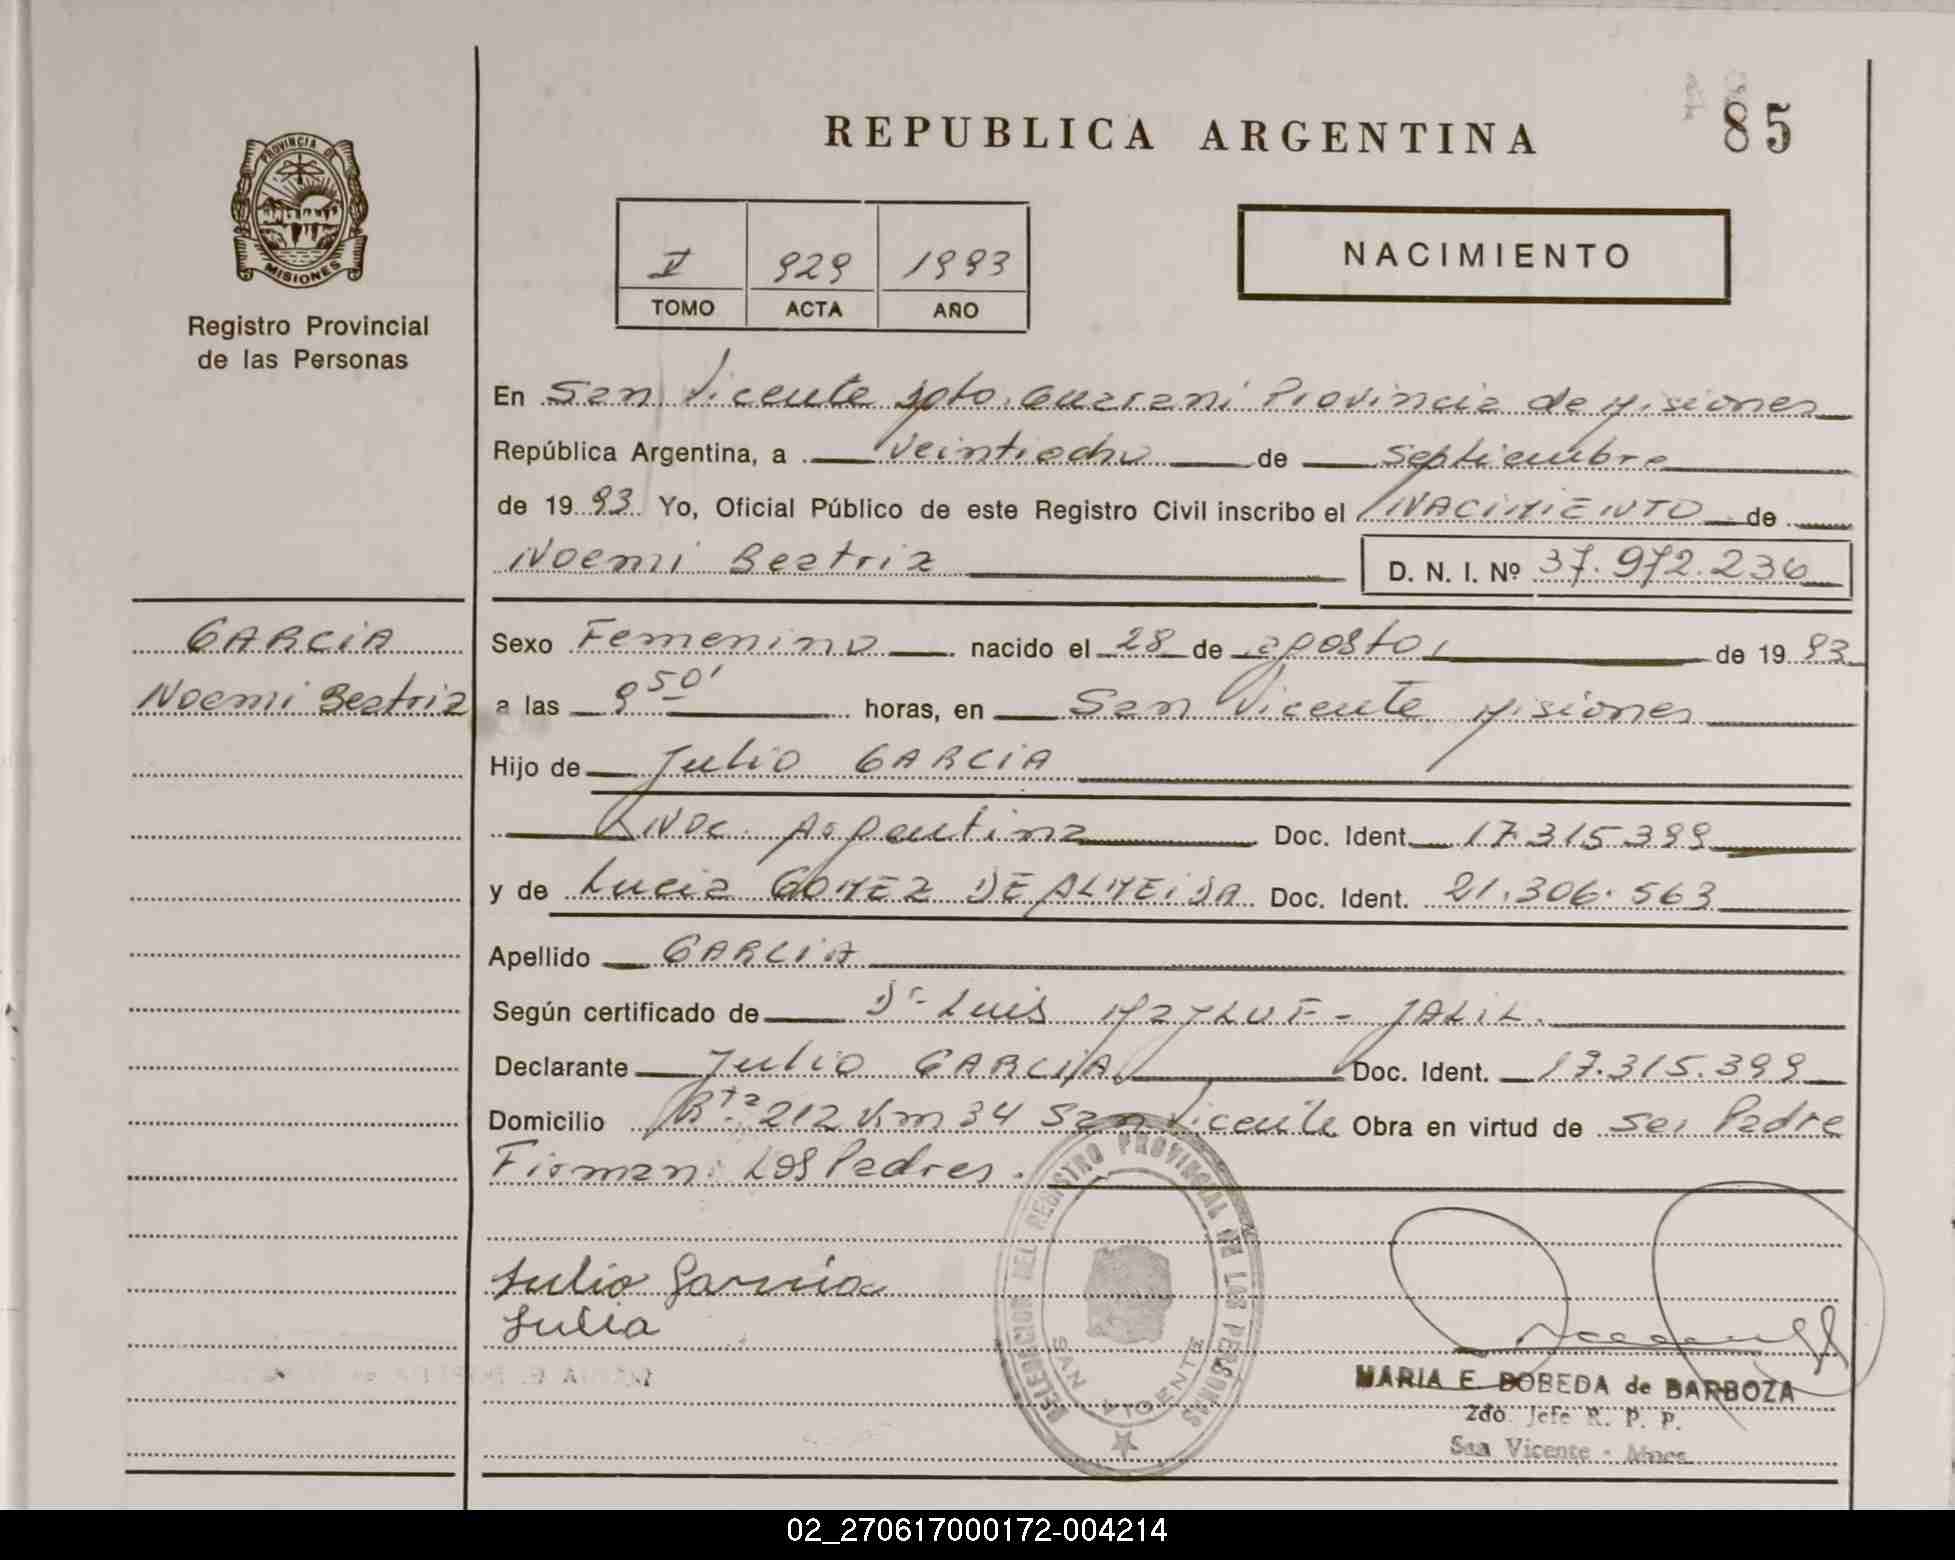 REPUBLICA ARGENTINA
85
PROVINCIA DE
MISIONES
Registro Provincial
de las Personas
V 929 1993
TOMO ACTA AÑO
NACIMIENTO
En San Vicente Dpto. Guarani Provincia de Misiones
República Argentina, a veintiocho de Septiembre
de 1993 Yo, Oficial Público de este Registro Civil inscribo el NACIMIENTO de
Noemi Beatriz D. N. I. Nº 37.972.236
GARCIA
Noemi Beatriz
Sexo Femenino nacido el 28 de agosto, de 1993
a las 9 50' horas, en San Vicente Misiones
Hijo de Julio GARCIA
Nac. Argentina Doc. Ident. 17.315.399
y de Lucia GOMEZ DE ALMEIDA Doc. Ident. 21.306.563
Apellido GARCIA
Según certificado de Dr. Luis JALIL.
Declarante Julio GARCIA Doc. Ident. 17.315.399
Domicilio Rta. 212 Km 34 San Vicente Obra en virtud de ser Padre
Firman Los Padres.
Julio Garcia
Julia
DELEGACION DEL REGISTRO PROVINCIAL DE LAS PERSONAS
SAN VICENTE
MARIA E. BOBEDA de BARBOZA
2do. Jefe R. P. P.
San Vicente - Mnes.
02_270617000172-004214